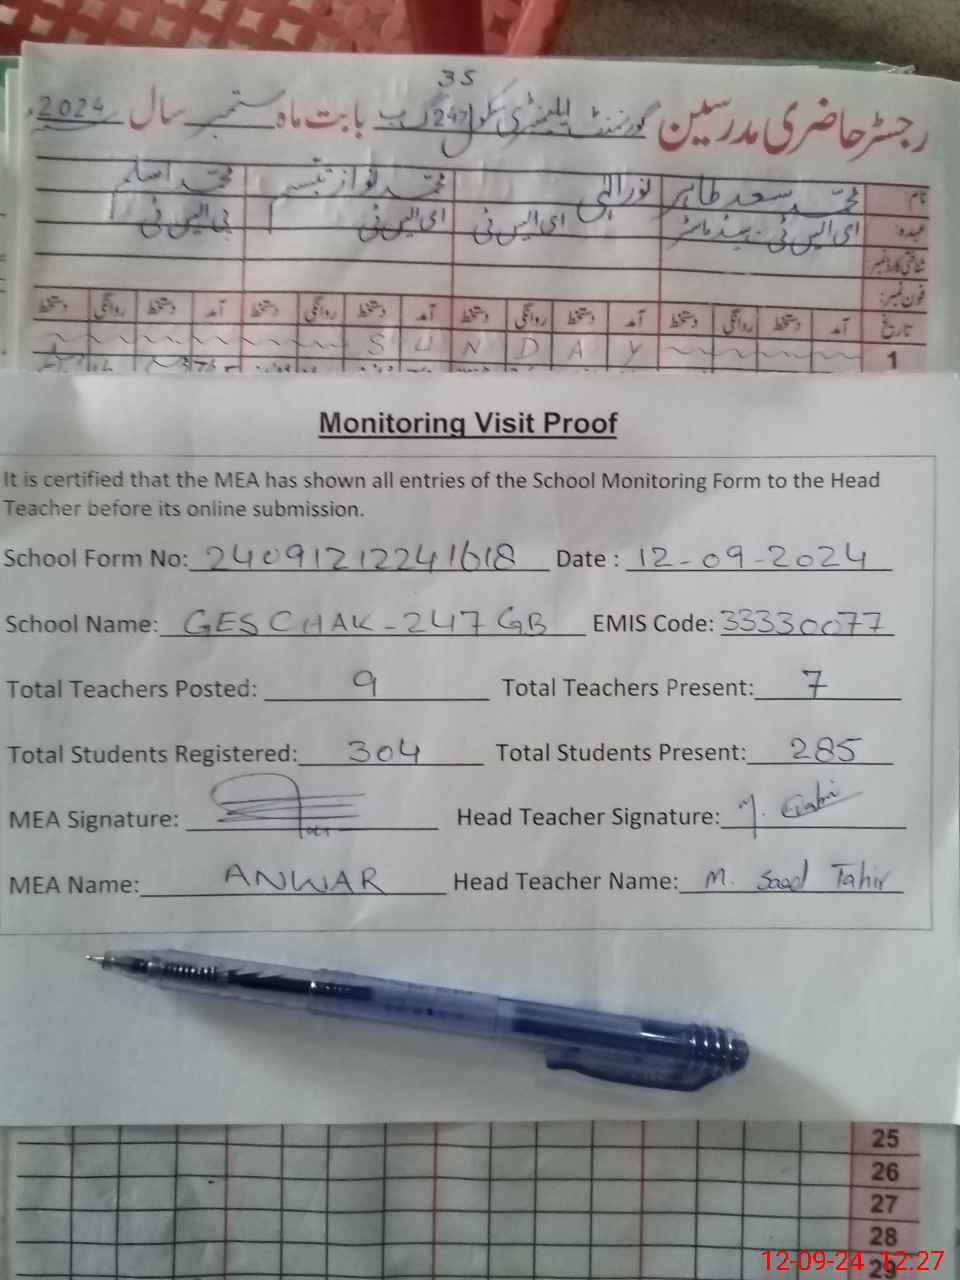 35
رجسٹر حاضری مدرسین گورنمنٹ ایلیمنٹری سکول 247 گ ب بابت ماہ ستمبر سال 2024
نام: محمد سعد طاہر نور الٰہی محمد نواز تبسم محمد اسلم
عہدہ: ای ایس ٹی - ہیڈ ماسٹر ای ایس ٹی ای ایس ٹی پی ایس ٹی
شناختی کارڈ نمبر:
فون نمبر:
تاریخ آمد دستخط روانگی دستخط آمد دستخط روانگی دستخط آمد دستخط روانگی دستخط آمد دستخط روانگی دستخط
1 S U N D A Y
Monitoring Visit Proof
It is certified that the MEA has shown all entries of the School Monitoring Form to the Head
Teacher before its online submission.
School Form No: 24091212241618 Date : 12-09-2024
School Name: GES CHAK-247 GB EMIS Code: 33330077
Total Teachers Posted: 9 Total Teachers Present: 7
Total Students Registered: 304 Total Students Present: 285
MEA Signature: Head Teacher Signature:
MEA Name: ANWAR Head Teacher Name: M. Saad Tahir
25
26
27
28
29
12-09-24 12:27